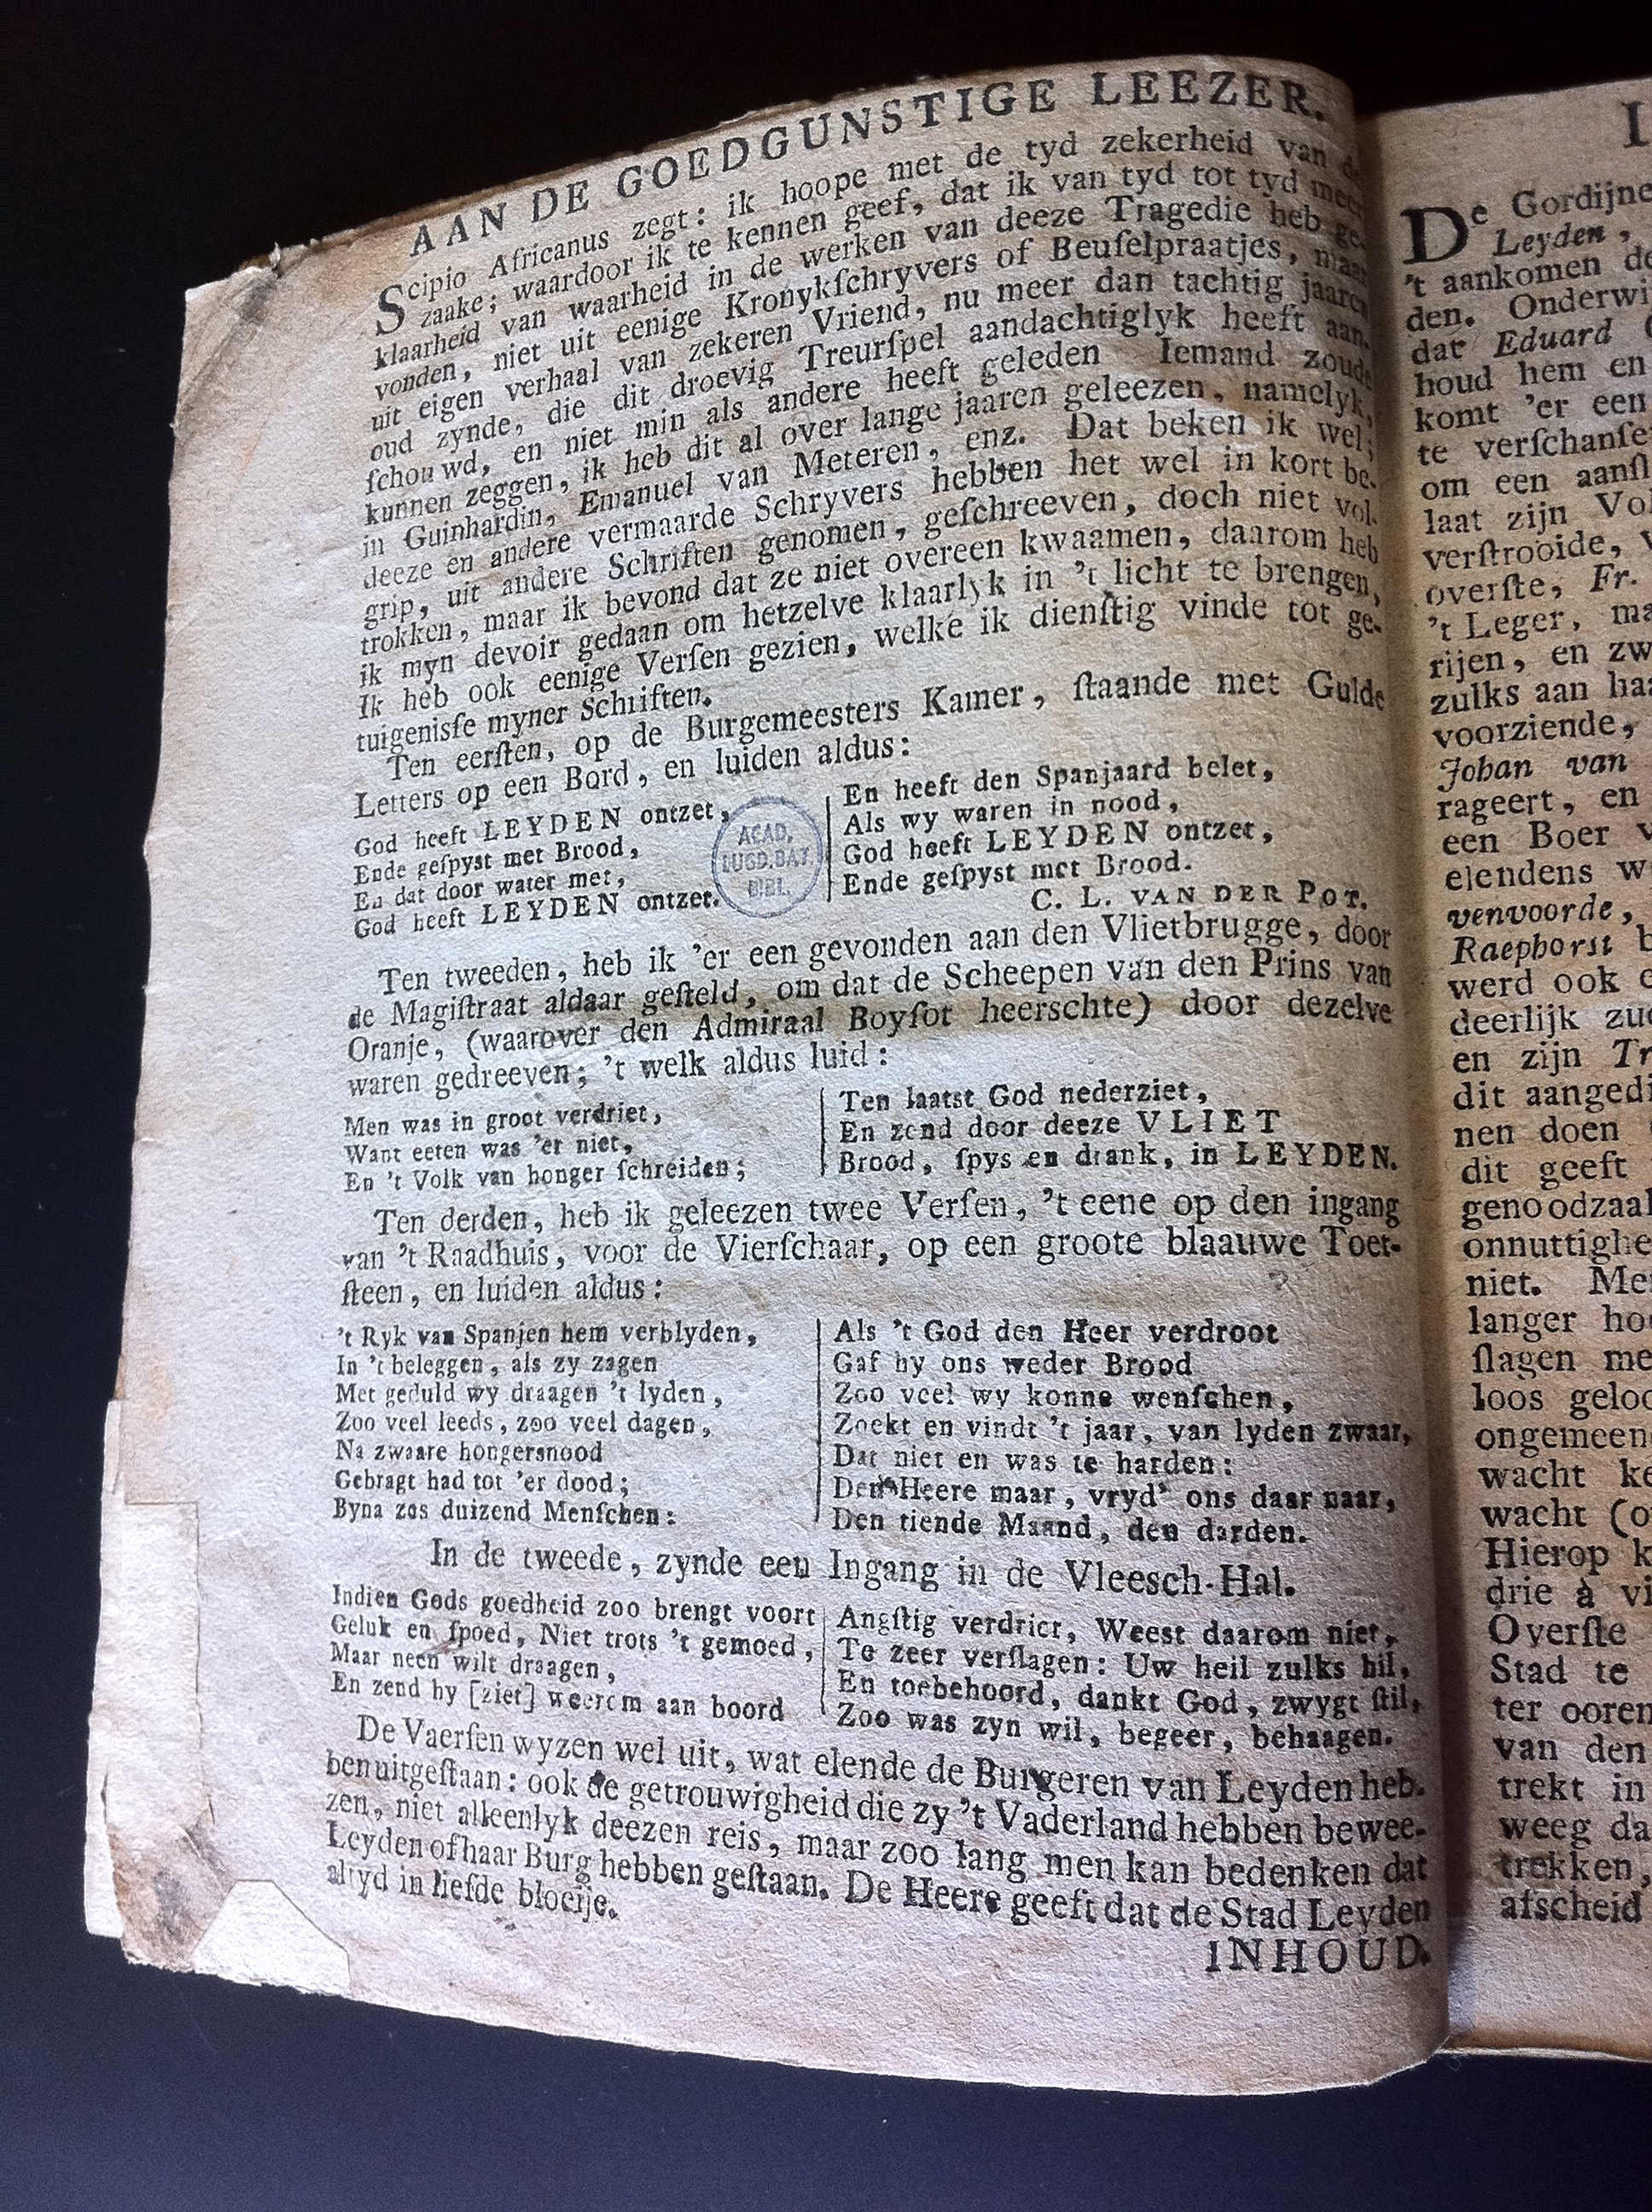 AAN DE GOEDGUNSTIGE LEEZER.
Scipio Africanus zegt: ik hoope met de tyd zekerheid van de
zaake; waardoor ik te kennen geef, dat ik van tyd tot tyd meer
klaarheid van waarheid in de werken van deeze Tragedie heb ge-
vonden, niet uit eenige Kronykſchryvers of Beuſelpraatjes, maar
uit eigen verhaal van zekeren Vriend, nu meer dan tachtig jaaren
oud zynde, die dit droevig Treurſpel aandachtiglyk heeft aan-
ſchouwd, en niet min als andere heeft geleden Iemand zoude
kunnen zeggen, ik heb dit al over lange jaaren geleezen, namelyk,
in Guinhardin, Emanuel van Meteren, enz. Dat beken ik wel;
deeze en andere vermaarde Schryvers hebben het wel in kort be-
grip, uit andere Schriften genomen, geſchreeven, doch niet vol-
trokken, maar ik bevond dat ze niet overeen kwaamen, daarom heb
ik myn devoir gedaan om hetzelve klaarlyk in 't licht te brengen,
Ik heb ook eenige Verſen gezien, welke ik dienſtig vinde tot ge-
tuigeniſſe myner Schriften.
Ten eerſten, op de Burgemeesters Kamer, ſtaande met Gulde
Letters op een Bord, en luiden aldus:
God heeft LEYDEN ontzet,
Ende geſpyst met Brood,
En dat door water met,
God heeft LEYDEN ontzet.
ACAD.
LUGD.BAT.
BIBL.
En heeft den Spanjaard belet,
Als wy waren in nood,
God heeft LEYDEN ontzet,
Ende geſpyst met Brood.
C. L. VAN DER POT.
Ten tweeden, heb ik 'er een gevonden aan den Vlietbrugge, door
de Magiſtraat aldaar geſteld, om dat de Scheepen van den Prins van
Oranje, (waarover den Admiraal Boyſot heerschte) door dezelve
waren gedreeven; 't welk aldus luid:
Men was in groot verdriet,
Want eeten was 'er niet,
En 't Volk van honger ſchreiden;
Ten laatst God nederziet,
En zend door deeze VLIET
Brood, ſpys en drank, in LEYDEN.
Ten derden, heb ik geleezen twee Verſen, 't eene op den ingang
van 't Raadhuis, voor de Vierſchaar, op een groote blaauwe Toet-
ſteen, en luiden aldus:
't Ryk van Spanjen hem verblyden,
In 't beleggen, als zy zagen
Met geduld wy draagen 't lyden,
Zoo veel leeds, zoo veel dagen,
Na zwaare hongersnood
Gebragt had tot 'er dood;
Byna zes duizend Menſchen:
Als 't God den Heer verdroot
Gaf hy ons weder Brood
Zoo veel wy konne wenſchen,
Zoekt en vindt 't jaar, van lyden zwaar,
Dat niet en was te harden:
Den Heere maar, vryd' ons daar naar,
Den tiende Maand, den darden.
In de tweede, zynde een Ingang in de Vleesch-Hal.
Indien Gods goedheid zoo brengt voort
Geluk en ſpoed, Niet trots 't gemoed,
Maar neen wilt draagen,
En zend hy [ziet] weerom aan boord
Angſtig verdriet, Weest daarom niet,
Te zeer verſlagen: Uw heil zulks hil,
En toebehoord, dankt God, zwygt ſtil,
Zoo was zyn wil, begeer, behaagen.
De Vaerſen wyzen wel uit, wat elende de Burgeren van Leyden heb-
ben uitgeſtaan: ook de getrouwigheid die zy 't Vaderland hebben bewee-
zen, niet alleenlyk deezen reis, maar zoo lang men kan bedenken dat
Leyden of haar Burg hebben geſtaan. De Heere geeft dat de Stad Leyden
altyd in liefde bloeije.
INHOUD.
De Gordijne
Leyden,
't aankomen de
den. Onderwi
dat Eduard
houd hem en
komt 'er een
te verſchanſe
om een aanſl
laat zijn Vol
verſtrooide,
overſte, Fr.
't Leger, ma
rijen, en zw
zulks aan haa
voorziende,
Johan van
rageert, en
een Boer v
elendens w
venvoorde,
Raephorst b
werd ook
deerlijk zuc
en zijn Tr
dit aangedi
nen doen
dit geeft
genoodzaak
onnuttighe
niet. Me
langer ho
ſlagen me
loos geloo
ongemeen
wacht ke
wacht (o
Hierop k
drie à vi
Overſte
Stad te
ter ooren
van den
trekt in
weeg da
trekken,
afscheid